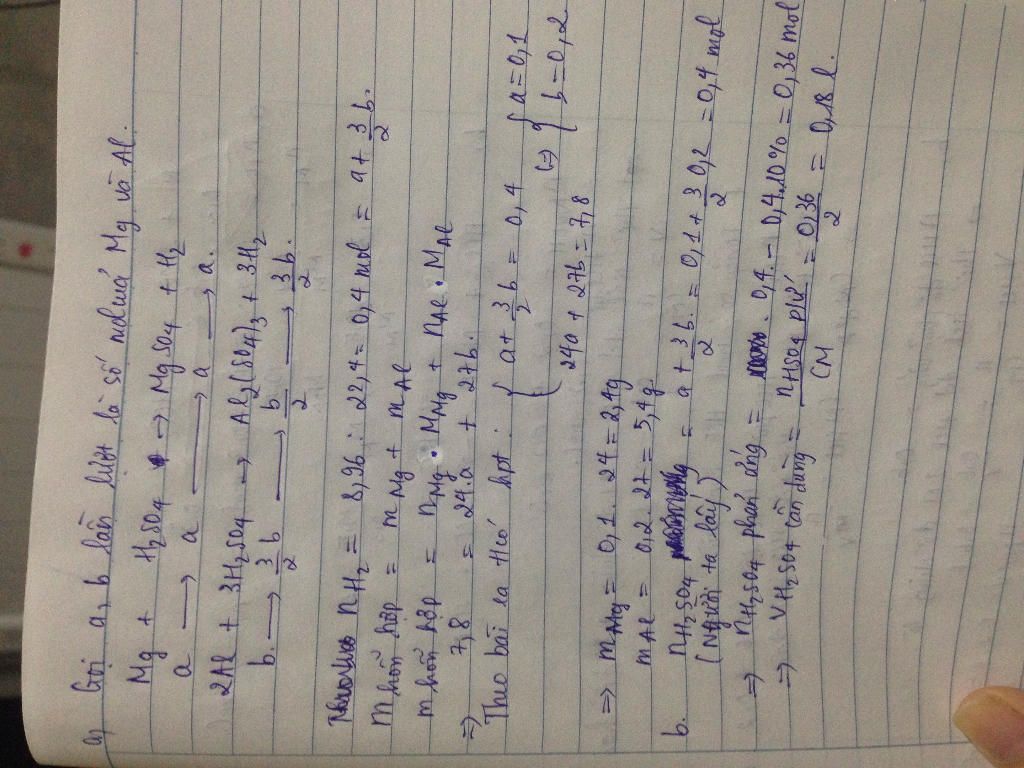 a) Gọi a, b lần lượt là số mol của Mg và Al.
Mg + H2SO4 → MgSO4 + H2
a → a → a → a.
2Al + 3H2SO4 → Al2(SO4)3 + 3H2
b. → 3/2 b → b/2 → 3/2 b.
nH2 = 8,96 : 22,4 = 0,4 mol = a + 3/2 b.
m hỗn hợp = mMg + mAl
m hỗn hợp = nMg . MMg + nAl . MAl
=> 7,8 = 24.a + 27b.
Theo bài ra ta có hpt : { a + 3/2 b = 0,4 (=) { a = 0,1
24a + 27b = 7,8 b = 0,2
=> mMg = 0,1 . 24 = 2,4g
mAl = 0,2 . 27 = 5,4g
b. nH2SO4 = a + 3/2 b. = 0,1 + 3/2 0,2 = 0,4 mol
(Người ta lấy)
=> nH2SO4 phản ứng = 0,4. - 0,4.10% = 0,36 mol
=> VH2SO4 cần dùng = nH2SO4 p/ứ / CM = 0,36 / 2 = 0,18 l.